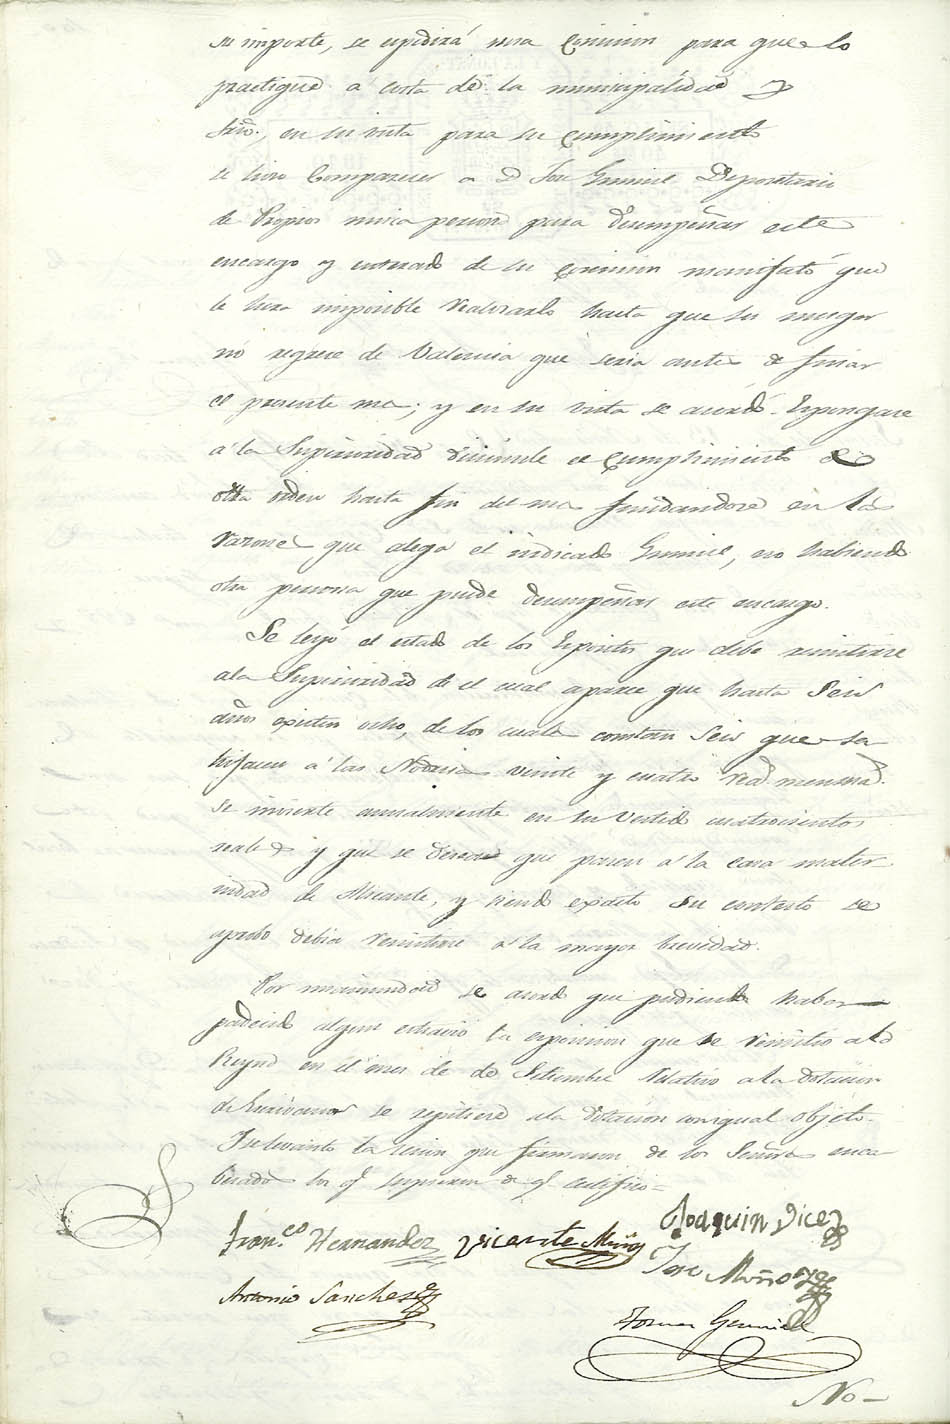 su importe, se espedirá una comision para que lo
practique á costa de la municipalidad y
Srio., en su vista para su cumplimiento
se hizo Comparecer a D José Gumiel Depositario
de Propios unica persona para desempeñar este
encargo y enterado de su comision manifestó que
le hera imposible realizarlo hasta que su muger
nó regrese de Valencia que seria antes de finar
el presente mes; y en su vista se acordó. Espongase
á la Superioridad disimule el cumplimiento de
otra orden hasta fin del mes fundandose en las
razones que alega el indicado Gumiel, no habiendo
otra persona que puede desempeñar este encargo.
Se leyó el estado de los Espositos que debe remitirse
a la Superioridad de el cual aparece que hasta Seis
años existen ocho, de los cuales constan Seis que sa
tisfacen á las Nodrisas veinte y cuatro rs mensua.
se invierte anualmente en su Vestido cuatrocientos
reales y que se desea que pasen á la casa mater
nidad de Alicante, y siendo exacto su contesto se
aprobo debia remitirse á la mayor brevedad.
Por unanimidad se acordó que pudiendo haber
padecido algun estravio la esposicion que se remitio a la
Reyna en el mes de de Setiembre relativo a la dotacion
de se repitiese a la con igual objeto.
Y se levanto la sesion que firmaron de los Señores enca
bezados los q.e supieron de q.e certifico =
Fran.co Hernandez Vicente Muñoz Joaquin Dicez
Jose Muñoz
Antonio Sanches
Tomas Gumiel
No-